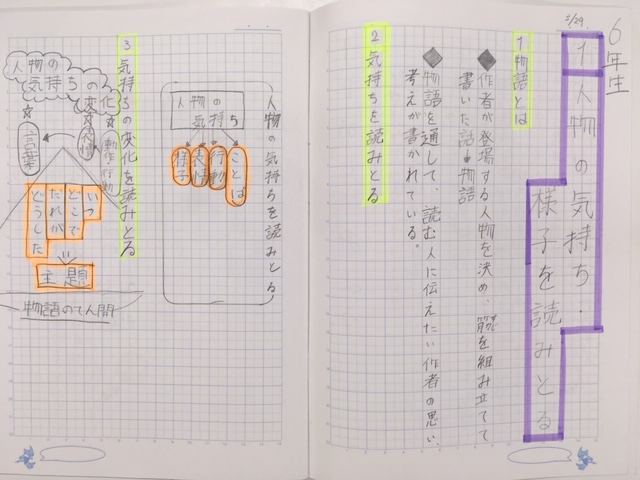 6年生
5/29.
1 人物の気持ち・
様子を読みとる
1 物語とは
◆作者が登場する人物を決め、筋を組み立てて
すじ
書いた話→物語
◆物語を通して、読む人に伝えたい作者の思い、
考えが書かれている。
2 気持ちを読みとる
人物の気持ちを読みとる
人物の
気持ち
ことば
行動
表情
様子
3 気持ちの変化を読みとる
人物の
気持ちの変化
動作・行動
表情
言葉
いつ
どこで
だれが
どうした
主題
物語のてん開